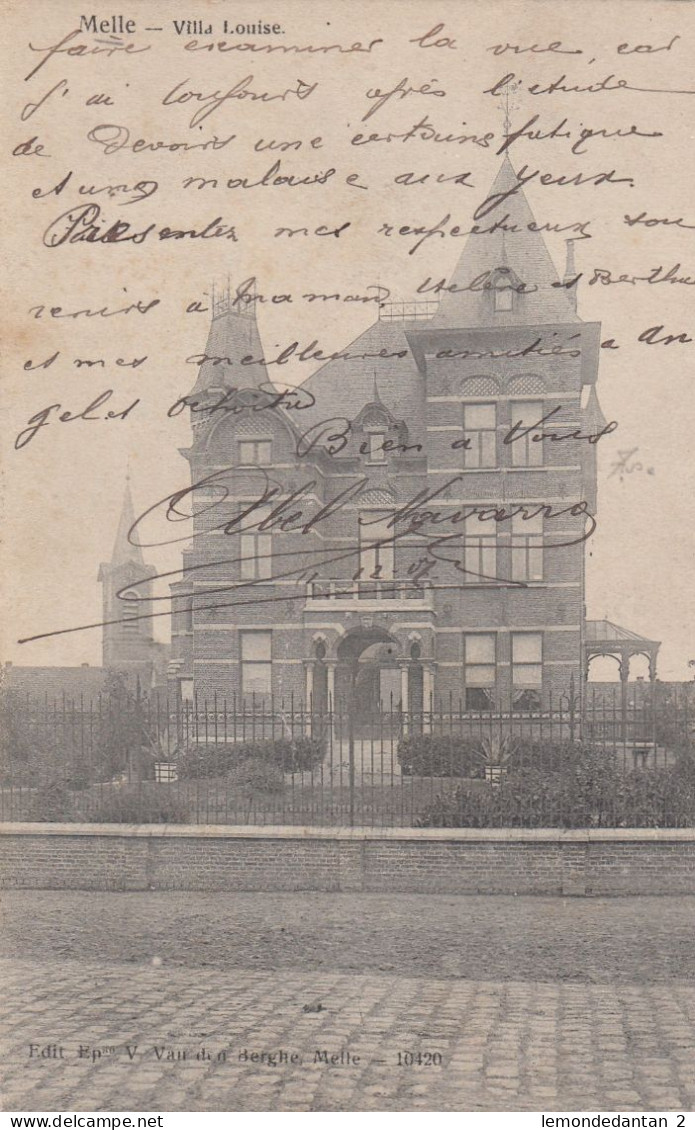 Melle — Villa Louise.
faire examiner la vue, car
j'ai toujours après l'étude
de Devoirs une certaine fatigue
et un malaise aux yeux.
Présentez mes respectueux sou
venirs à Maman, Hélène et Berthe
et mes meilleures amitiés a An
gel et
Bien a Vous
Abel Navarro
11-12-07
Edit. Epse V. Van den Berghe, Melle — 10420
lemondedantan 2